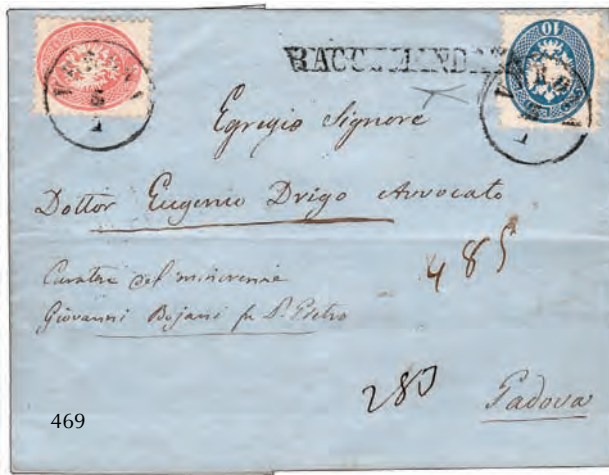 RACCOMANDA
10
Egregio Signore
Dottor Eugenio Drigo Avvocato
Curatore del minorenne
Giovanni Bojani fu D. Pietro
485
283
Padova
469